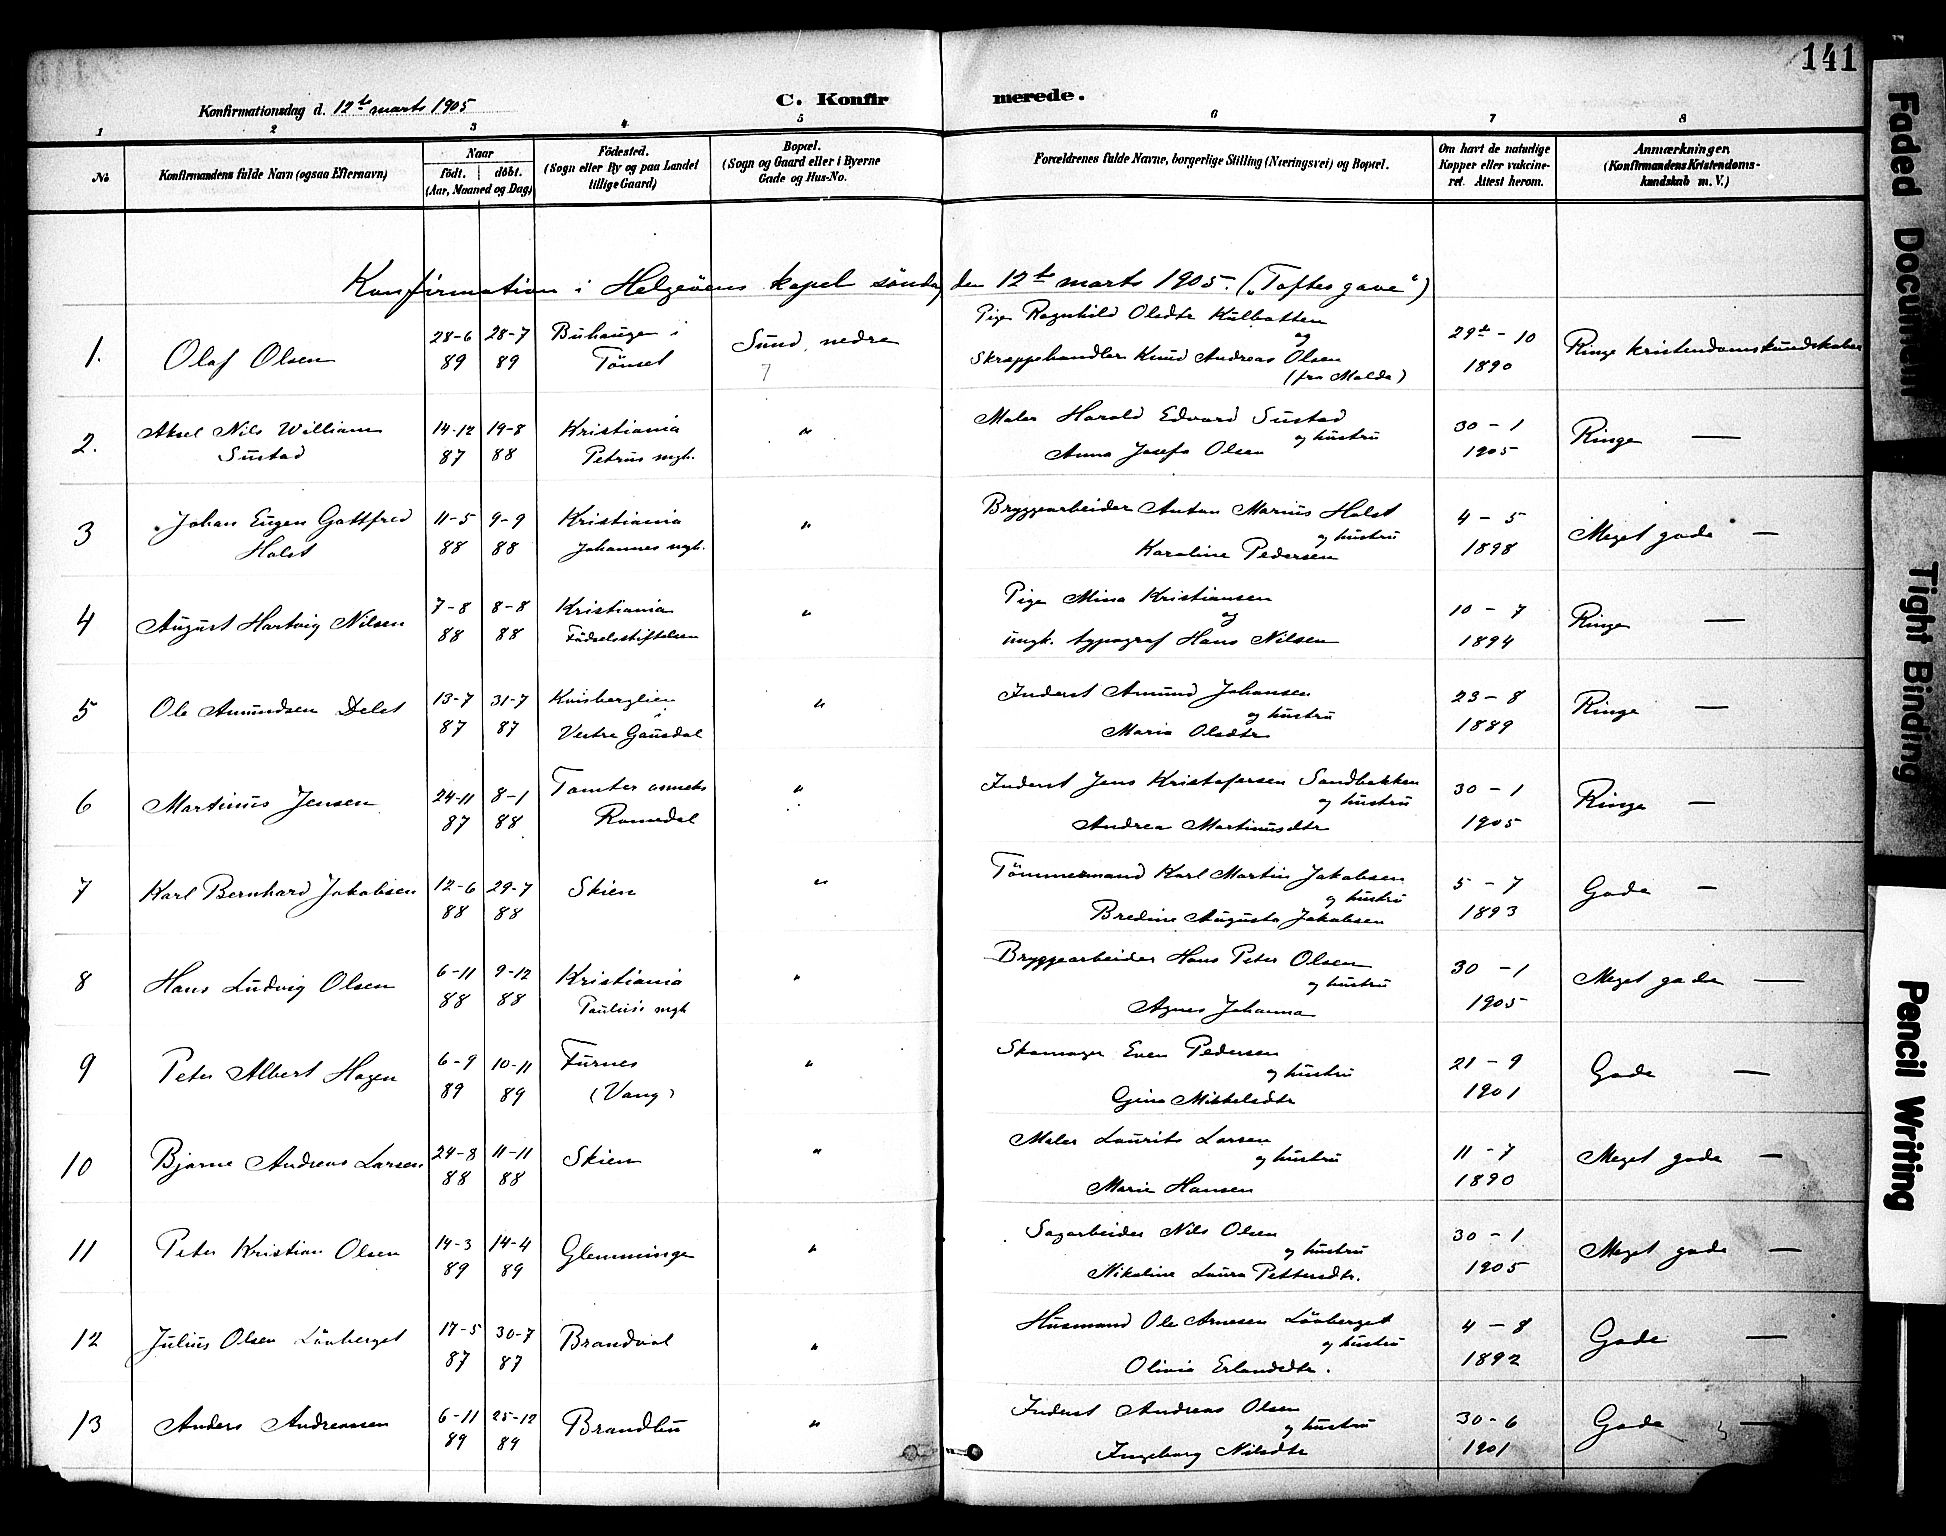 141
Konfirmationsdag d. 12te marts 1905
C. Konfirmerede.
1 2 3 4 5 6 7 8
No.
Konfirmandens fulde Navn (ogsaa Efternavn)
Naar
Födt. döbt.
(Aar, Maaned og Dag)
Födested.
(Sogn eller By og paa Landet
tillige Gaard)
Bopæl.
(Sogn og Gaard eller i Byerne
Gade og Hus-No.
Forældrenes fulde Navne, borgerlige Stilling (Næringsvei) og Bopæl.
Om havt de naturlige
Kopper eller vakcine-
ret. Attest herom.
Anmærkninger.
(Konfirmandens Kristendoms-
kundskab m. V.)
Konfirmation i Helgøens kapel söndag den 12te marts 1905. („Toftes gave“)
1. Olaf Olsen
28-6 89
28-7 89
Buhaugen i
Tönset
Sund, nedre
7
Pige Ragnhild Olsdtr Kulbotten
og
Skraphandler Knud Andreas Olsen
(fra Molde)
29de - 10
1890
Ringe kristendomskundskaber
2. Aksel Nils William
Sustad
14-12 87
19-8 88
Kristiania
Petrus mgh.
"
Maler Harald Edvard Sustad
og hustru
Anna Josefa Olsen
30 - 1
1905
Ringe —
3 Johan Eugen Gottfred
Holst
11-5 88
9-9 88
Kristiania
Johannes mgh.
"
Bryggearbeider Anton Marius Holst
og hustru
Karoline Pedersen
4 - 5
1898
Meget gode —
4 August Hartvig Nilsen
7-8 88
8-8 88
Kristiania
Födselsstiftelsen
"
Pige Mina Kristiansen
og
ungk. typograf Hans Nilsen
10 - 7
1894
Ringe —
5 Ole Amundsen Delet
13-7 87
31-7 87
Knisberglien
i
Vestre Gausdal
"
Inderst Amund Johansen
og hustru
Maria Olsdtr
23 - 8
1889
Ringe —
6 Martinus Jensen
24-11 87
8-1 88
Tomter anneks
Romedal
"
Inderst Jens Kristofersen Sandbakken
og hustru
Andrea Martinusdtr
30 - 1
1905
Ringe —
7 Karl Bernhard Jakobsen
12-6 88
29-7 88
Skien
"
Tömmermand Karl Martin Jakobsen
og hustru
Bredine Augusta Jakobsen
5 - 7
1893
Gode —
8 Hans Ludvig Olsen
6-11 88
9-12 88
Kristiania
Paulus's mgh
"
Bryggearbeider Hans Peter Olsen
og hustru
Agnes Johanna
30 - 1
1905
Meget gode —
9 Peter Albert Hagen
6-9 89
10-11 89
Furnes
(Vang)
"
Skomager Even Pedersen
og hustru
Gina Mikkelsdtr
21 - 9
1901
Gode —
10 Bjarne Andreas Larsen
24-8 88
11-11 88
Skien
"
Maler Laurits Larsen
og hustru
Marie Hansen
11 - 7
1890
Meget gode —
11 Peter Kristian Olsen
14-3 89
14-4 89
Glemminge
"
Sagarbeider Nils Olsen
og hustru
Nikoline Laura Pettersdtr.
30 - 1
1905
Meget gode —
12 Julius Olsen Lövberget
17-5 87
30-7 87
Brandval
"
Husmand Ole Arnesen Lövberget
og hustru
Olivia Erlandsdtr.
4 - 8
1892
Gode —
13 Anders Andreassen
6-11 89
25-12 89
Brandbu
"
Inderst Andreas Olsen
og hustru
Ingeborg Nilsdtr
30 - 6
1901
Gode —
Faded Document
Tight Binding
Pencil Writing